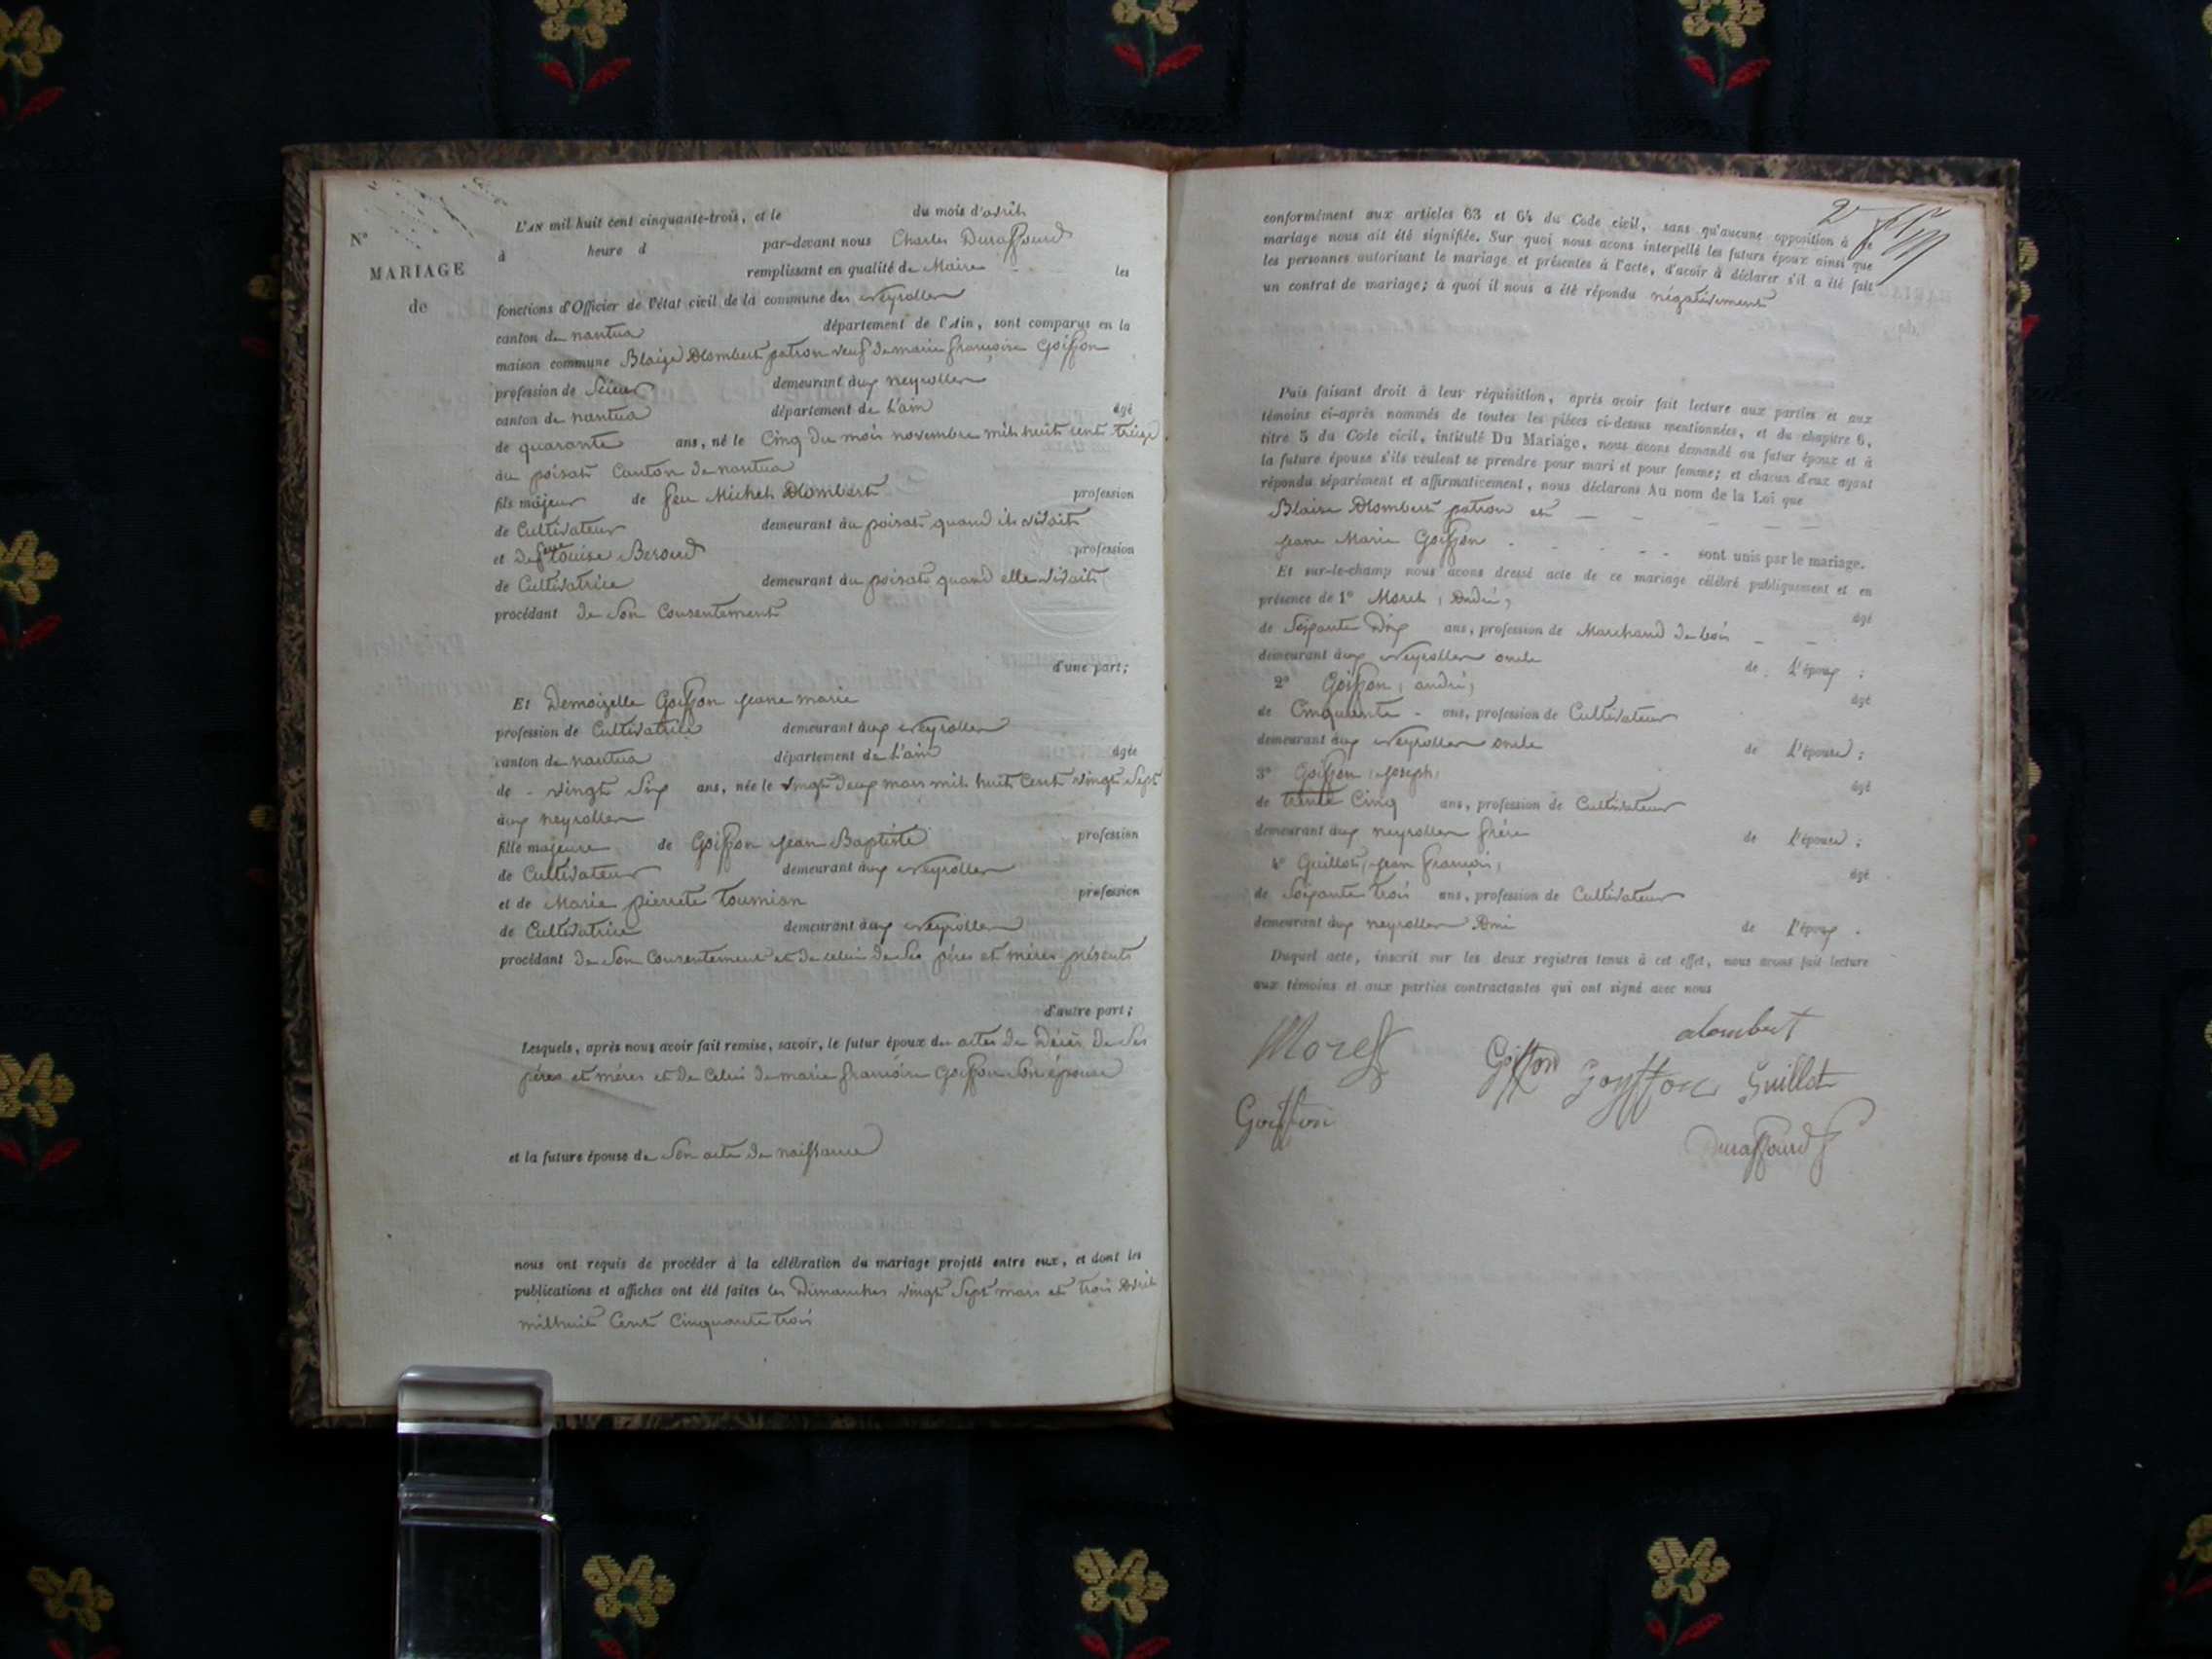 N°
MARIAGE
de
L'AN mil huit cent cinquante-trois, et le du mois d'avril
à heure d par-devant nous Charles Duraffourd
remplissant en qualité de Maire les
fonctions d'Officier de l'état civil de la commune des Neyrolles
canton de nantua département de l'Ain, sont comparus en la
maison commune Blaise Alombert patron veuf de marie françoise Goiffon
profession de Scieur demeurant aux neyrolles
canton de nantua département de L'ain âgé
de quarante ans, né le Cinq du mois novembre mil huit cent treize
au poisat Canton de nantua
fils majeur de feu Michel Alombert profession
de Cultivateur demeurant au poizat quand il vivait
et de feue Louise Beroud profession
de Cultivatrice demeurant au poizat quand elle vivait
procédant de son Consentement
d'une part;
Et Demoizelle Goiffon jeane marie
profession de Cultivatrice demeurant aux Neyrolles
canton de nantua département de L'ain âgée
de vingt six ans, née le vingt deux mars mil huit Cent vingt Sept
aux neyrolles
fille majeure de Goiffon jean Baptiste profession
de Cultivateur demeurant aux Neyrolles
et de Marie pierrette tournian profession
de Cultivatrice demeurant aux Neyrolles
procédant de son Consentement et de celui de ses pères et mères présents
d'autre part;
Lesquels, après nous avoir fait remise, savoir, le futur époux des actes de Décès de ses
pères et mères et de Celui de marie francoise Goiffon son épouse
et la future épouse de son acte de naissance
nous ont requis de procéder à la célébration du mariage projeté entre eux, et dont les
publications et affiches ont été faites les Dimanches vingt Sept mars et trois Avril
mil huit Cent Cinquante trois
2
conformément aux articles 63 et 64 du Code civil, sans qu'aucune opposition à ce
mariage nous ait été signifiée. Sur quoi nous avons interpellé les futurs époux ainsi que
les personnes autorisant le mariage et présentes à l'acte, d'avoir à déclarer s'il a été fait
un contrat de mariage; à quoi il nous a été répondu négativement
Puis faisant droit à leur réquisition, après avoir fait lecture aux parties et aux
témoins ci-après nommés de toutes les pièces ci-dessus mentionnées, et du chapitre 6,
titre 5 du Code civil, intitulé Du Mariage, nous avons demandé au futur époux et à
la future épouse s'ils veulent se prendre pour mari et pour femme; et chacun d'eux ayant
répondu séparément et affirmativement, nous déclarons Au nom de la Loi que
Blaise Alombert patron et
jeane Marie Goiffon sont unis par le mariage.
Et sur-le-champ nous avons dressé acte de ce mariage célébré publiquement et en
présence de 1° Morel, André, âgé
de Soixante dix ans, profession de Marchand de bois
demeurant aux Neyrolles oncle de L'époux;
2° Goiffon, andré, âgé
de Cinquante ans, profession de Cultivateur
demeurant aux Neyrolles oncle de L'épouse;
3° Goiffon, joseph, âgé
de trente Cinq ans, profession de Cultivateur
demeurant aux neyrolles frère de L'épouse;
4° Guillot, jean françois, âgé
de Soixante trois ans, profession de Cultivateur
demeurant aux neyrolles Ami de L'époux.
Duquel acte, inscrit sur les deux registres tenus à cet effet, nous avons fait lecture
aux témoins et aux parties contractantes qui ont signé avec nous
alombert
Morel Goiffon Goyffon Guillot
Goiffon
Duraffourd